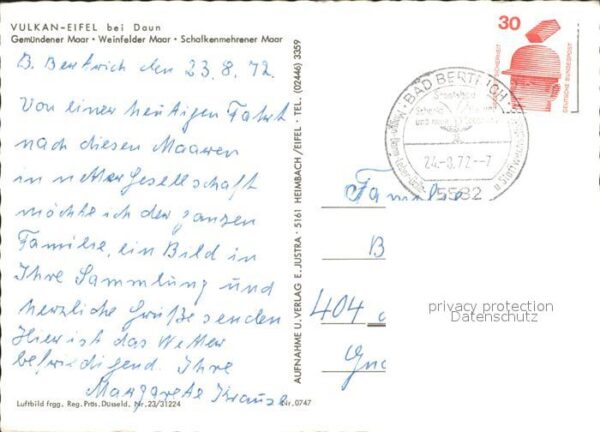 VULKAN-EIFEL bei Daun
Gemündener Maar • Weinfelder Maar • Schalkenmehrener Maar
B. Bertrich den 23.8.72
Von einer heutigen Fahrt
nach diesen Maaren
in netter Gesellschaft
möchte ich der ganzen
Familie, ein Bild in
Ihre Sammlung und
herzliche Grüße senden
Hier ist das Wetter
befriedigend. Ihre
Margarete Krause
Luftbild frgg. Reg. Präs. Düsseld. Nr. 23/31224
Nr. 0747
AUFNAHME U. VERLAG E. JUSTRA • 5161 HEIMBACH/EIFEL • TEL. (02446) 3359
30
DEUTSCHE BUNDESPOST
BAD BERTRICH
24.-8.72-7
5582
Familie
B
404
privacy protection
Datenschutz